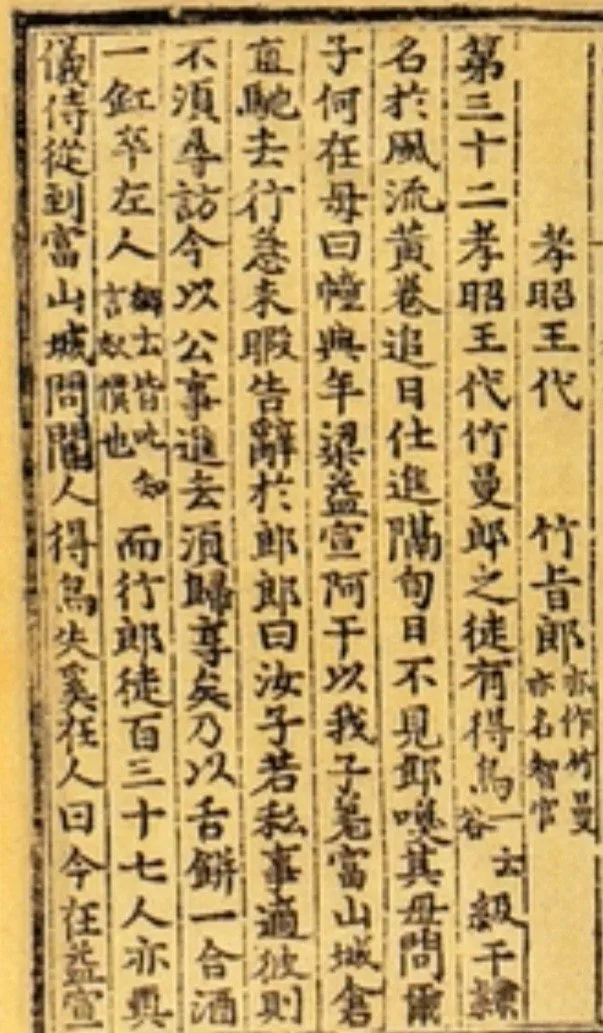 孝昭王代 竹旨郎 亦作竹曼 亦名智官
第三十二孝昭王代竹曼郎之徒有得烏 一云 谷 級干隷
名於風流黃卷追日仕進隔旬日不見郎喚其母問爾
子何在母曰幢典年梁益宣阿干以我子差富山城倉
直馳去行急未暇告辭於郎郎曰汝子若私事適彼則
不須尋訪今以公事進去須歸享矣乃以舌餠一合酒
一缸卒左人 鄕云皆叱知 言奴僕也 而行郎徒百三十七人亦具
儀侍從到富山城問閽人得烏失奚在人曰今在益宣